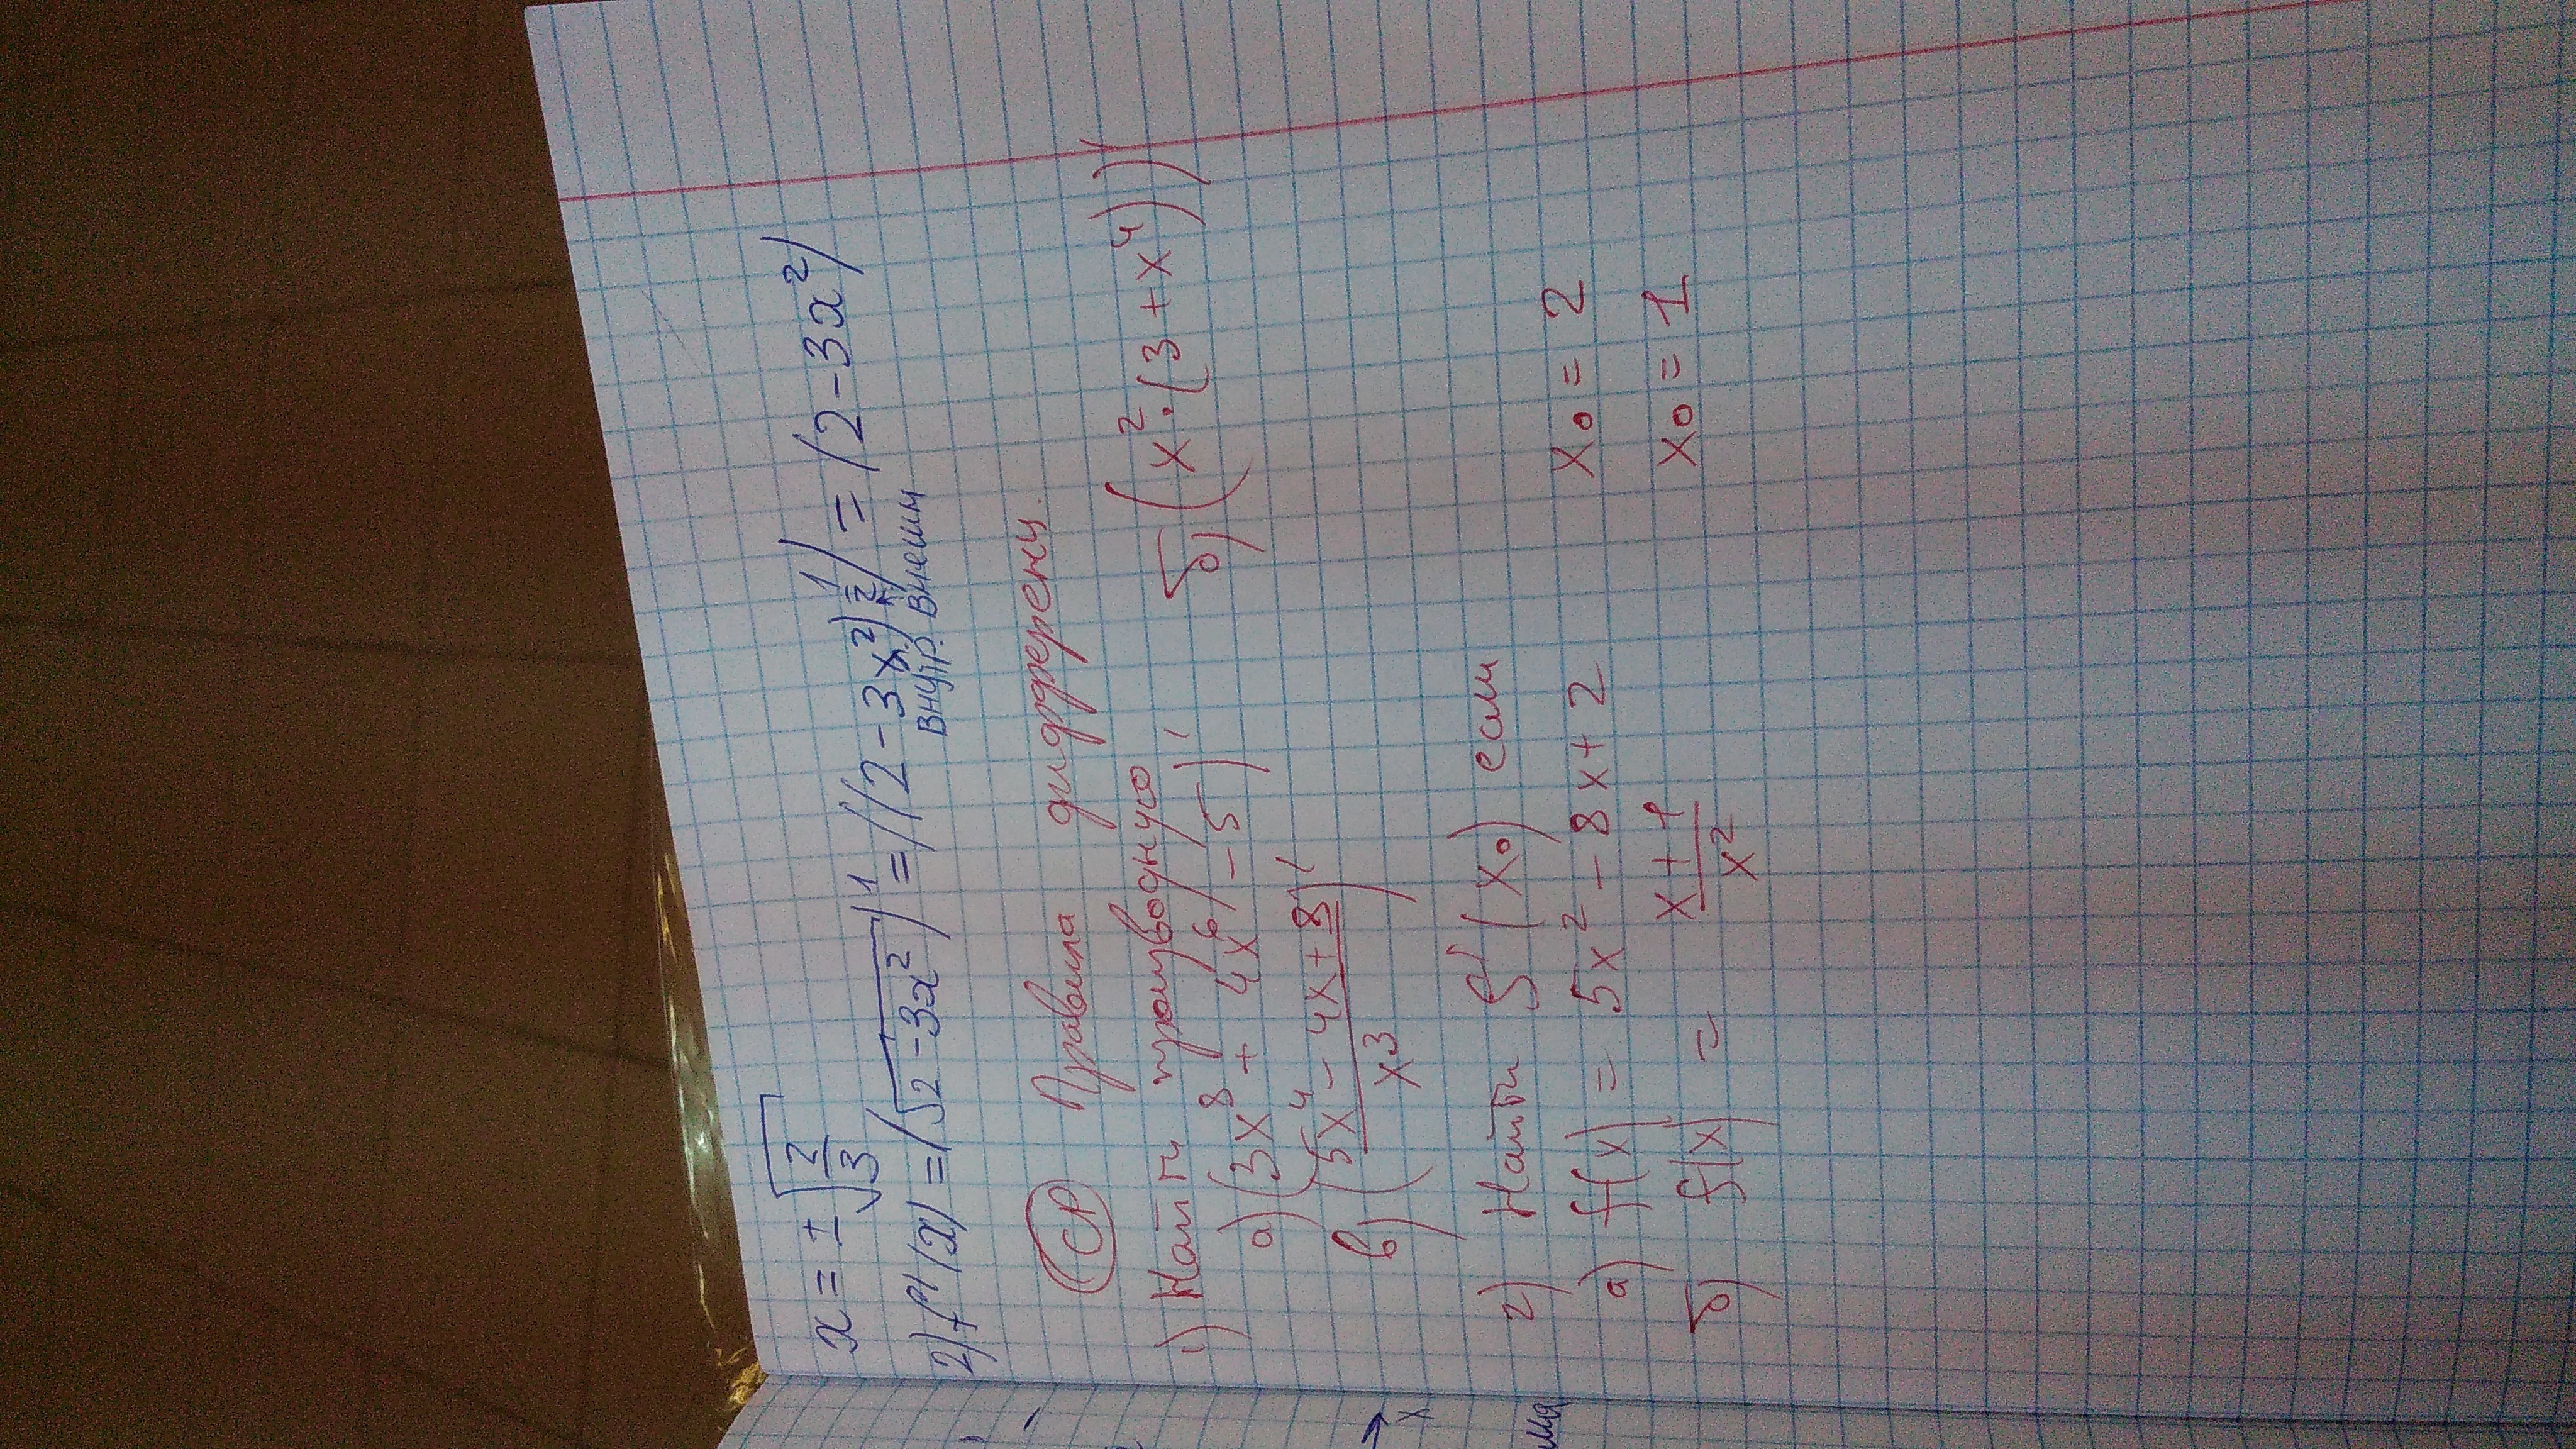 x = ±√(2/3)
2) f'(x) = (√(2-3x²))¹ = ((2-3x²)^(1/2)) = (2-3x²)
внутр. внешн
СР Правила дифференц.
1) Найти производную
а) (3x⁸ + 4x⁶ - 5)' б) (x²·(3+x⁴))'
в) ((5x⁴ - 4x + 8)/x³)'
2) Найти f'(x₀) если
а) f(x) = 5x² - 8x + 2 x₀ = 2
б) f(x) = (x+1)/x² x₀ = 1
x